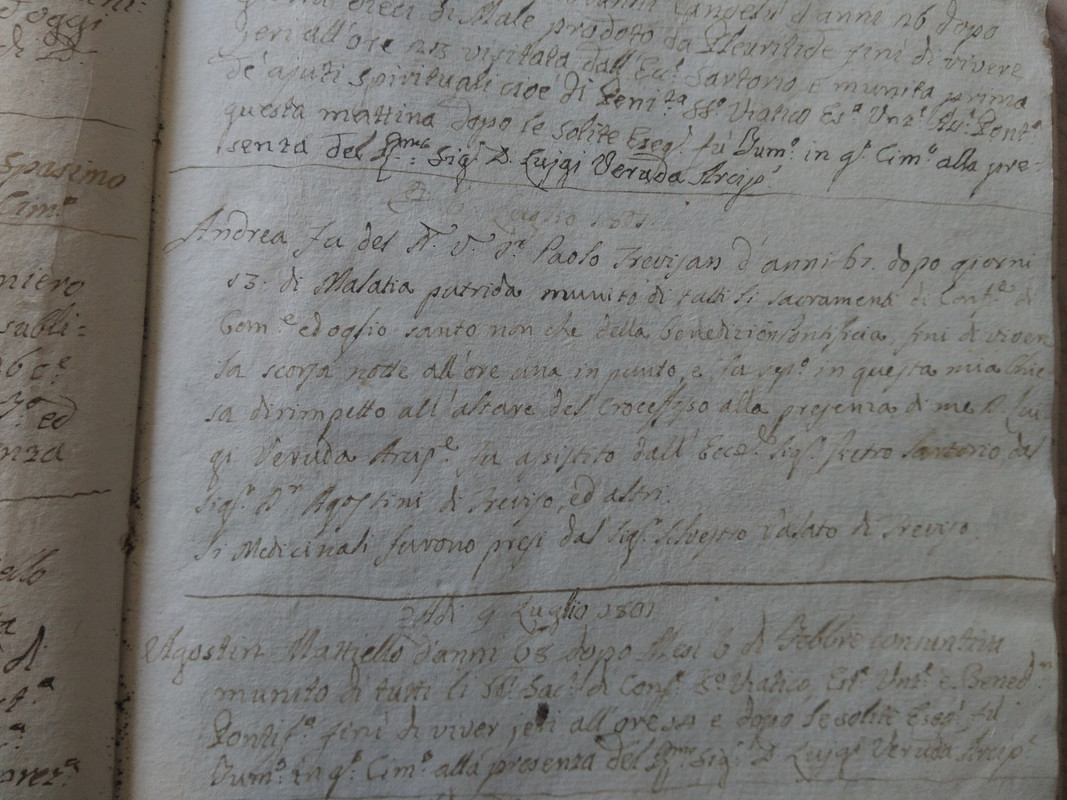 d'oggi
Giorni dieci di Male prodoto da Pleuritide finì di vivere
jeri all'ore 23 visitata dall'Ecc.e Sartorio, e munita prima
de' ajuti spirituali cioè di Penit.za SS.o Viatico Es.a Unz.e Bn.e Pont.a
questa mattina dopo le solite Eseq.e fù Tum.o in q.o Cim.o alla pre-
senza del Sig.r D. Luigi Veruda Arcip.e
Luglio 1801
Andrea fu del N. V. Paolo Trevisan d'anni 67. dopo giorni
13. di Malatia putrida munito di tutti li sacramenti di Conf.e di
Com.e ed oglio santo non che della benedizion Pontificia finì di viver
la scorsa notte all'ore una in punto, e fu sep.o in questa mia Chie
sa dirimpetto all'altare del Crocefisso alla presenza di me D. Lui
gi Veruda Arcip.e fu assistito dall'Ecce.e Sig.r Pietro Sartorio, dal
Sig.r D.r Agostini di Treviso, ed altri.
Li Medicinali furono presi dal Sig.r Silvestro Valato di Treviso.
Adi 9 Luglio 1801
Agostin Mattiello d'anni 68 dopo Mesi 6 di Febbre consuntiva
munito di tutti li SS.i Sac.i di Conf.e S.o Viatico, Est.a Unz.e e Bened.n
Pontif.a finì di viver jeri all'ore e dopo le solite Eseq.e fù
Tum.o in q.o Cim.o alla presenza del Sig.r D. Luigi Veruda Arcip.e
spasimo
Cim.o
niero
subli=
ed
nza
di
prez.a